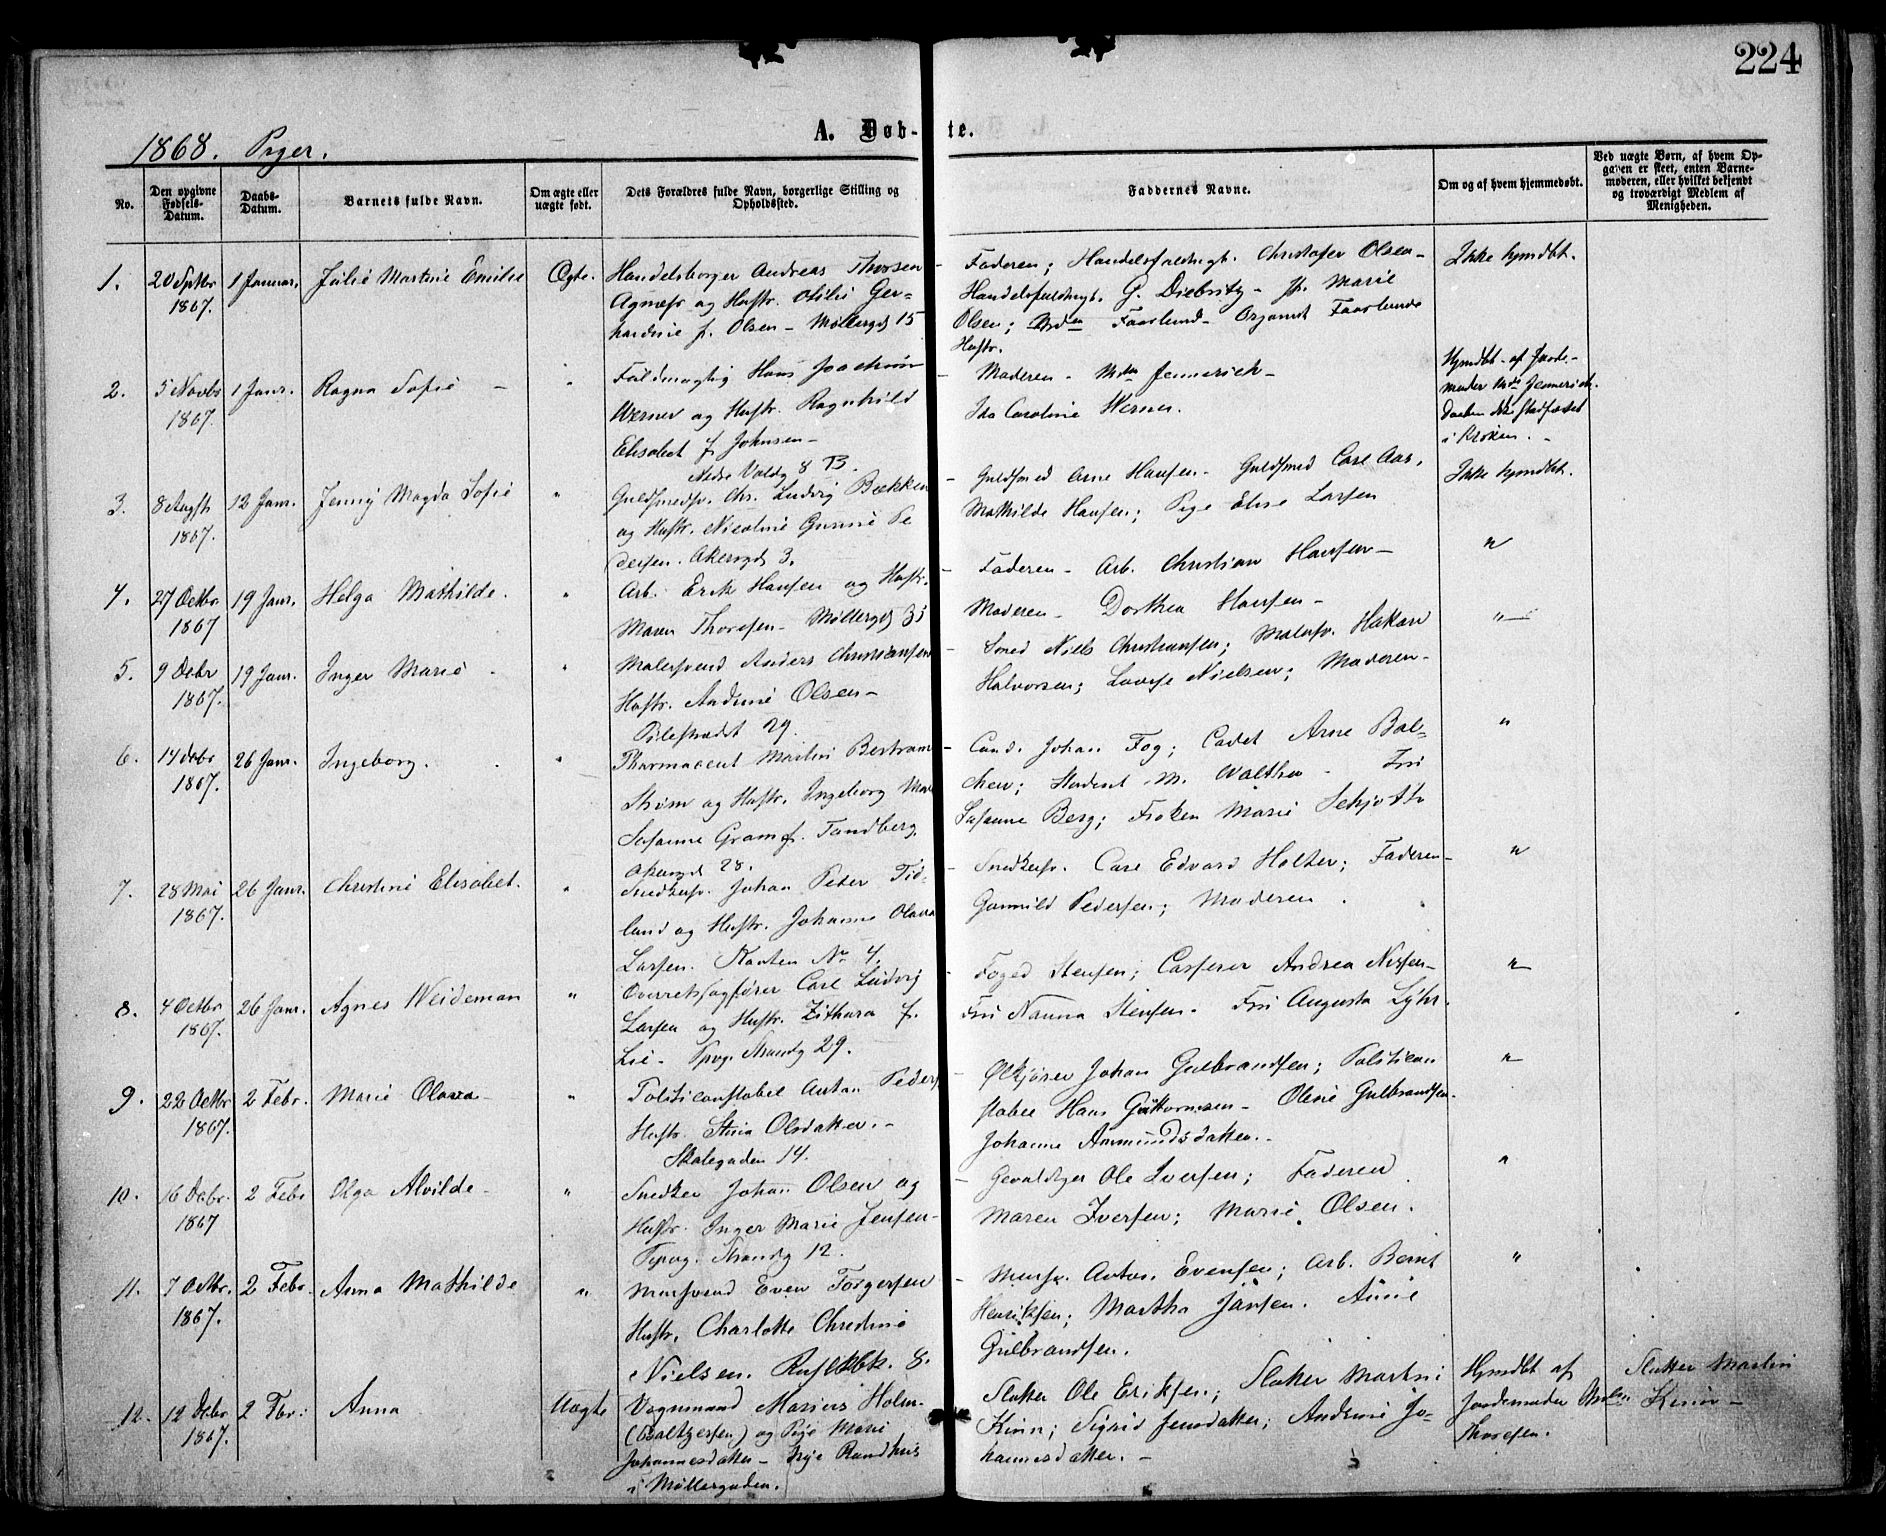 224
A. Døb-te.
1868. Piger.
No.
Den opgivne Fødsels-Datum.
Daabs-Datum.
Barnets fulde Navn.
Om ægte eller uægte født.
Dets Forældres fulde Navn, borgerlige Stilling og Opholdssted.
Faddernes Navne.
Om og af hvem hjemmedøbt.
Ved uægte Børn, af hvem Opgaven er skeet, enten Barnemoderen, eller hvilket bekjendt og troværdigt Medlem af Menigheden.
1. 20 Septbr 1 Januar. Julie Martine Emilie Ægte. Handelsborger Andreas Thorsen
1867.
Agnæs og Hustr. Otilie Ger-
hardine f. Olsen - Møllergd 15
Faderen; Handelsfuldmgt. Christofer Olsen -
Handelsfuldmgt. G. Diebritz - Marie
Olsen; Mdm Faarlund - Organist Faarlunds
Hustr.
Ikke hjmdbt.
2. 5 Novbr 1 Janr. Ragna Sofie - " Fuldmægtig Hans Joachim
1867.
Werner og Hustr. Ragnhild
Elisabet f. Johnsen -
Nedre Voldg 8 B.
Moderen - Mdm Jennerich -
Ida Caroline Werner.
Hjmdbt. af Jorde-
moder Mdm Jennerich.
Daaben ikke stadfæstet
i Kirken. -
3. 8 Augst 12 Janr. Jenny Magda Sofie " Guldsmedsv. Chr. Ludvig Bækken
1867.
og Hustr. Nicoline Gunnie Pe
dersen. Akersgd 3.
Guldsmed Arne Hansen - Guldsmed Carl Aas,
Mathilde Hansen; Pige Elise Larsen
Ikke hjmdbt.
4. 27 Octbr 19 Janr. Helga Mathilde. " Arb. Erik Hansen og Hustr.
1867
Maren Thoresen - Møllergd 35
Faderen - Arb. Christian Hansen -
Moderen - Dorthea Hansen -
"
5. 9 Decbr 19 Janr. Inger Marie " Malersvend Anders Christiansen
1867.
Hustr. Andrine Olsen -
Pilestrædet 29.
Smed Niels Christiansen; Malersv. Hakan
Halvorsen; Lovise Nielsen; Moderen -
"
6. 14 Decbr 26 Janr. Ingeborg. " Pharmaceut Martin Bertram
1867.
Strøm og Hustr. Ingeborg Marie
Susanne Gram f. Tandberg
Akersgd 28.
Cand. Johan Fog; Cadet Arne Bal-
chen; Student M. Walther - Fru
Susanne Berg; Frøken Marie Schjøtt
"
7. 28 Mai 26 Janr. Christine Elisabet. " Snedkersv. Johan Peder Tid-
1867.
land og Hustr. Johanne Olava
Larsen. Kasten No 4.
Snedkersv. Carl Edvard Holter; Faderen -
Gunnild Pedersen; Moderen
"
8. 4 Octbr 26 Janr. Agnes Weideman " Overretssagfører Carl Ludvig
1867.
Larsen og Hustr. Zithara f.
Lie - Tpvg. Strandg 29.
Foged Stensen; Casserer Andrea Nissen -
Fru Nanna Stensen. Fru Augusta Lyhr.
"
9. 22 Octbr 2 Febr. Marie Olava - " Politiconstabel Anton Peders
1867.
Hustr. Stina Olsdatter. -
Skolegaden 14.
Ølkjører Johan Gulbrandsen; Politicon
stabel Hans Guttormsen - Oline Gulbrandsen.
Johanne Anmundsdatter. -
"
10. 16 Decbr. 2 Febr Olga Alvilde - " Snedker Johan Olsen og
1867
Hustr. Inger Marie Jensen -
Tpvg. Strandg 12.
Gevaldiger Ole Iversen; Faderen
Maren Iversen; Marie Olsen.
"
11. 7 Octbr. 2 Febr. Anna Mathilde " Mursvend Even Torgersen
1867.
Hustr. Charlotte Christine
Nielsen. Rusløkbk. 8.
Mursv. Anton Evensen; Arb. Bernt
Henriksen; Martha Jansen. Anne
Gulbrandsen.
"
12. 12 Decbr 2 Fbr: Anna Uægte Vognmand Marius Holm
1867.
(Baltzersen) og Pige Marie
Johannesdatter -
i Møllergaden.
Slakter Ole Eriksen; Slakter Martin
Kinn; Sigrid Jensdatter; Andrine Jo-
hannesdatter. -
Hjmdbt af
Jordemoder Mdm
Thoresen.
Slakter Martin
Kinn -